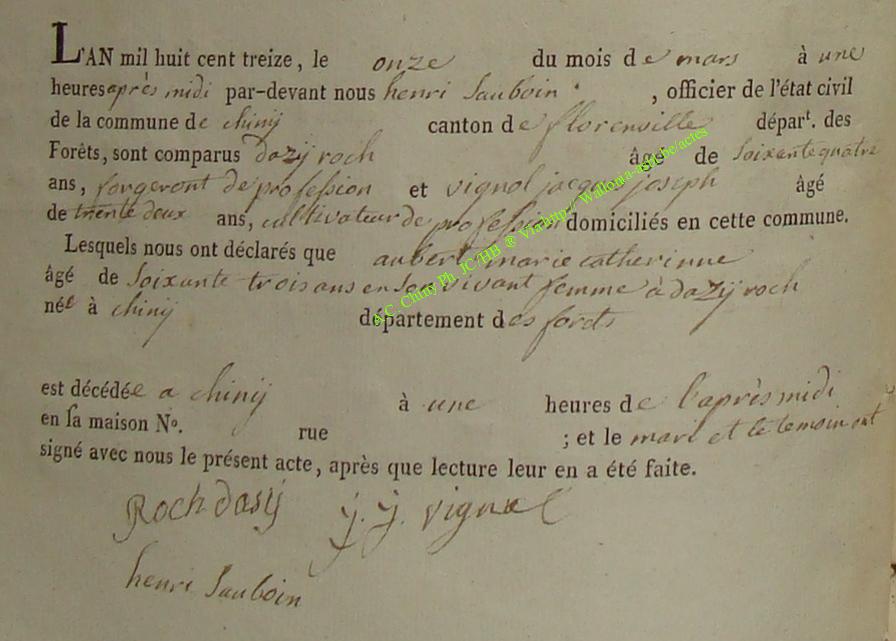 L'AN mil huit cent treize, le onze du mois de mars à une
heures après midi par-devant nous henri Sauboin, officier de l'état civil
de la commune de chinij canton de florenville départ. des
Forêts, sont comparus dazij roch âgé de Soixante quatre
ans, forgeront de profession et vignol jacque joseph âgé
de trente deux ans, cultivateur de profession domiciliés en cette commune.
Lesquels nous ont déclarés que aubert marie catherinne
âgé de Soixante trois ans en son vivant femme à dazij roch
née à chinij département des forets
est décédée a chinij à une heures de l'après midi
en sa maison No. rue ; et le mari et le temoin ont
signé avec nous le présent acte, après que lecture leur en a été faite.
Roch dasij j. j. vignol
henri Sauboin
E.C. Chiny Ph. JC HB ® Via http:/ Wallonia-asbl.be/actes